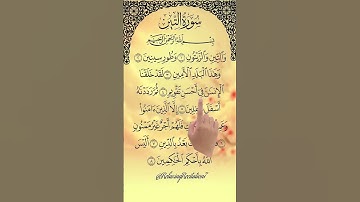 سُورَةُ التِّينِ
بِسْمِ اللَّهِ الرَّحْمَٰنِ الرَّحِيمِ
وَالتِّينِ وَالزَّيْتُونِ ١ وَطُورِ سِينِينَ ٢
وَهَٰذَا الْبَلَدِ الْأَمِينِ ٣ لَقَدْ خَلَقْنَا
الْإِنسَٰنَ فِي أَحْسَنِ تَقْوِيمٍ ٤ ثُمَّ رَدَدْنَٰهُ
أَسْفَلَ إِلَّا الَّذِينَ ءَامَنُوا
فَلَهُمْ أَجْرٌ غَيْرُ مَمْنُونٍ
بَعْدُ بِالدِّينِ ٧ أَلَيْسَ
اللَّهُ بِأَحْكَمِ الْحَٰكِمِينَ ٨
@RelaxingRecitation7